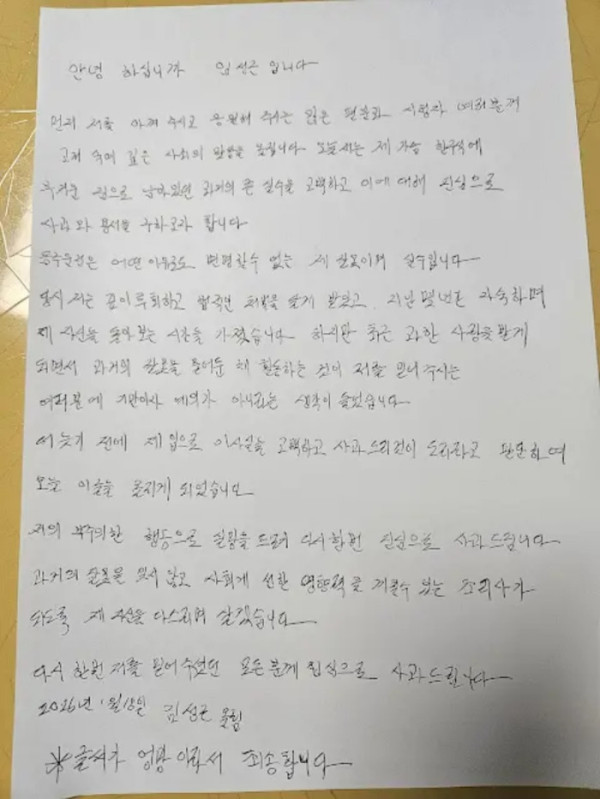 안녕 하십니까 임성근 입니다
먼저 저를 아껴 주시고 응원해 주시는 많은 팬분과 시청자 여러분께
고개 숙여 깊은 사죄의 말씀을 드립니다 오늘 저는 제 가슴 한구석에
무거운 짐으로 남아있던 과거의 큰 실수를 고백하고 이에 대해 진심으로
사과와 용서를 구하고자 합니다
음주운전은 어떤 이유로도 변명할수 없는 제 잘못이며 실수입니다
당시 저는 깊이 후회하고 법적인 처벌을 달게 받았고 지난 몇년은 자숙하며
제 자신을 돌아보는 시간을 가졌습니다 하지만 최근 과한 사랑을 받게
되면서 과거의 잘못을 묻어둔 채 활동하는 것이 저를 믿어주시는
여러분에 기만이자 예의가 아니라는 생각이 들었습니다
더 늦기 전에 제 입으로 이사실을 고백하고 사과 드리는것이 도리라고 판단하여
오늘 이 글을 올리게 되었습니다
저의 부주의한 행동으로 실망을 드려 다시한번 진심으로 사과 드립니다
과거의 잘못을 잊지 않고 사회에 선한 영향력을 끼칠수 있는 조리사가
되도록 제 자신을 다스리며 살겠습니다
다시 한번 저를 믿어 주셨던 모든 분께 진심으로 사과드립니다
2026년 1월18일 임성근 올림
※글씨가 엉망 이라서 죄송합니다